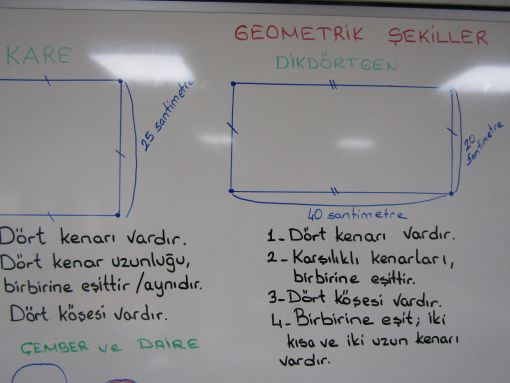 GEOMETRİK ŞEKİLLER
KARE
25 santimetre
Dört kenarı vardır.
Dört kenar uzunluğu,
birbirine eşittir/aynıdır.
Dört köşesi vardır.
ÇEMBER ve DAİRE
DİKDÖRTGEN
20
santimetre
40 santimetre
1- Dört kenarı vardır.
2- Karşılıklı kenarları,
birbirine eşittir.
3- Dört köşesi vardır.
4- Birbirine eşit; iki
kısa ve iki uzun kenarı
vardır.